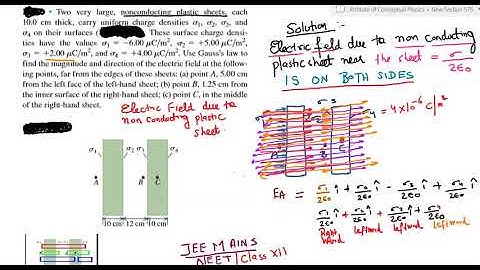 Institute of Conceptual Physics
• Two very large, nonconducting plastic sheets, each
10.0 cm thick, carry uniform charge densities σ₁, σ₂, σ₃, and
σ₄ on their surfaces
These surface charge densi-
ties have the values σ₁ = −6.00 μC/m², σ₂ = +5.00 μC/m²,
σ₃ = +2.00 μC/m², and σ₄ = +4.00 μC/m². Use Gauss's law to
find the magnitude and direction of the electric field at the follow-
ing points, far from the edges of these sheets: (a) point A, 5.00 cm
from the left face of the left-hand sheet; (b) point B, 1.25 cm from
the inner surface of the right-hand sheet; (c) point C, in the middle
of the right-hand sheet.
Electric Field due to
non conducting plastic
sheet.
σ₁ σ₂ σ₃ σ₄
A B C
10 cm 12 cm 10 cm
JEE MAINS
NEET / Class XII
Solution :-
Electric field due to non conducting
plastic sheet near the sheet = σ/2ε₀
IS ON BOTH SIDES
= 4×10⁻⁶ C/m²
EA = σ₁/2ε₀ î + σ₂/2ε₀ î − σ₃/2ε₀ î + σ₄/2ε₀ î
σ₁/2ε₀ î + σ₂/2ε₀ î + σ₃/2ε₀ î + σ₄/2ε₀
Right ward leftward leftward leftward